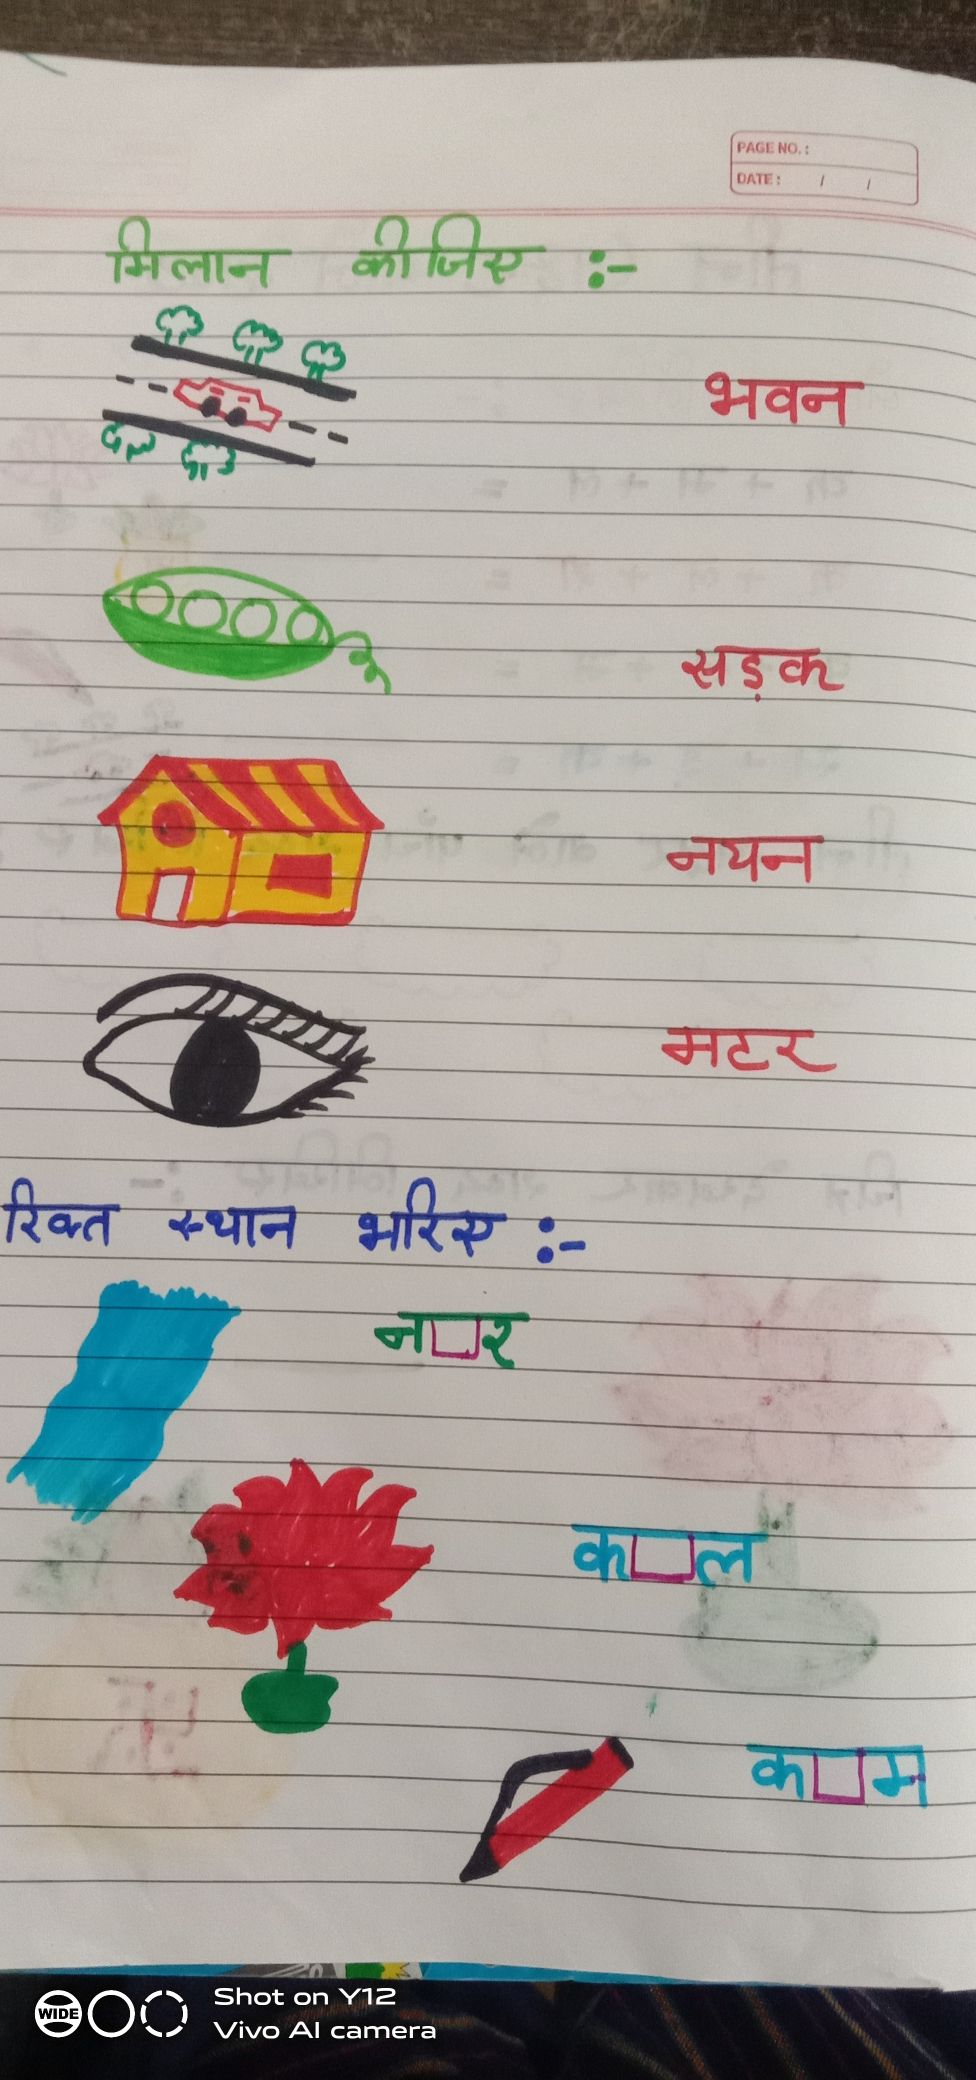 PAGE NO. :
DATE : / /
मिलान कीजिए :-
भवन
सड़क
नयन
मटर
रिक्त स्थान भरिए :-
न□र
क□ल
क□म
WIDE
Shot on Y12
Vivo AI camera